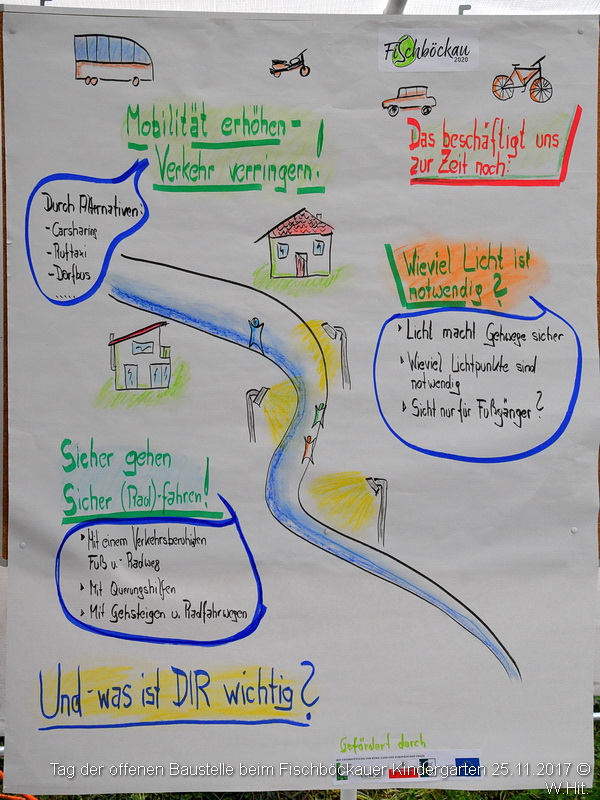 Fischböckau
2020
Mobilität erhöhen -
Verkehr verringern!
Das beschäftigt uns
zur Zeit noch:
Durch Alternativen:
- Carsharing
- Ruftaxi
- Dorfbus
.....
Wieviel Licht ist
notwendig?
› Licht macht Gehwege sicher
› Wieviel Lichtpunkte sind
notwendig
› Sicht nur für Fußgänger?
Sicher gehen
Sicher (Rad)-fahren!
› Mit einem Verkehrsberuhigten
Fuß u. Radweg
› Mit Querungshilfen
› Mit Gehsteigen u. Radfahrwegen
Und - was ist DIR wichtig?
Gefördert durch
Tag der offenen Baustelle beim Fischböckauer Kindergarten 25.11.2017 ©
W.Hit.